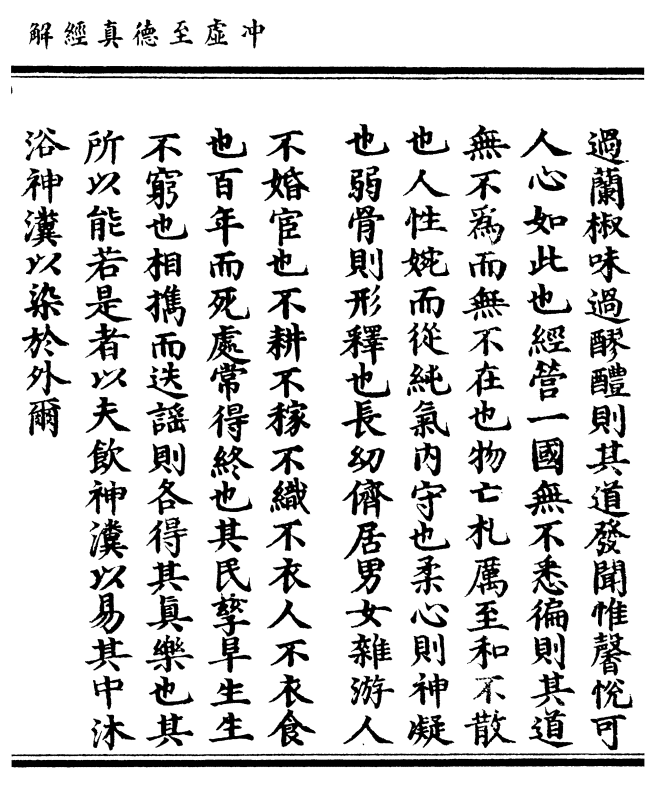 冲虛至德真經解
過蘭椒味過醪醴則其道發聞惟馨悅可
人心如此也經營一國無不悉徧則其道
無不為而無不在也物亡札厲至和不散
也人性婉而從純氣內守也柔心則神凝
也弱骨則形釋也長幼儕居男女雜游人
不婚宦也不耕不稼不織不衣人不衣食
也百年而死處常得終也其民孳早生生
不窮也相攜而迭謠則各得其眞樂也其
所以能若是者以夫飲神瀵以易其中沐
浴神瀵以染於外爾